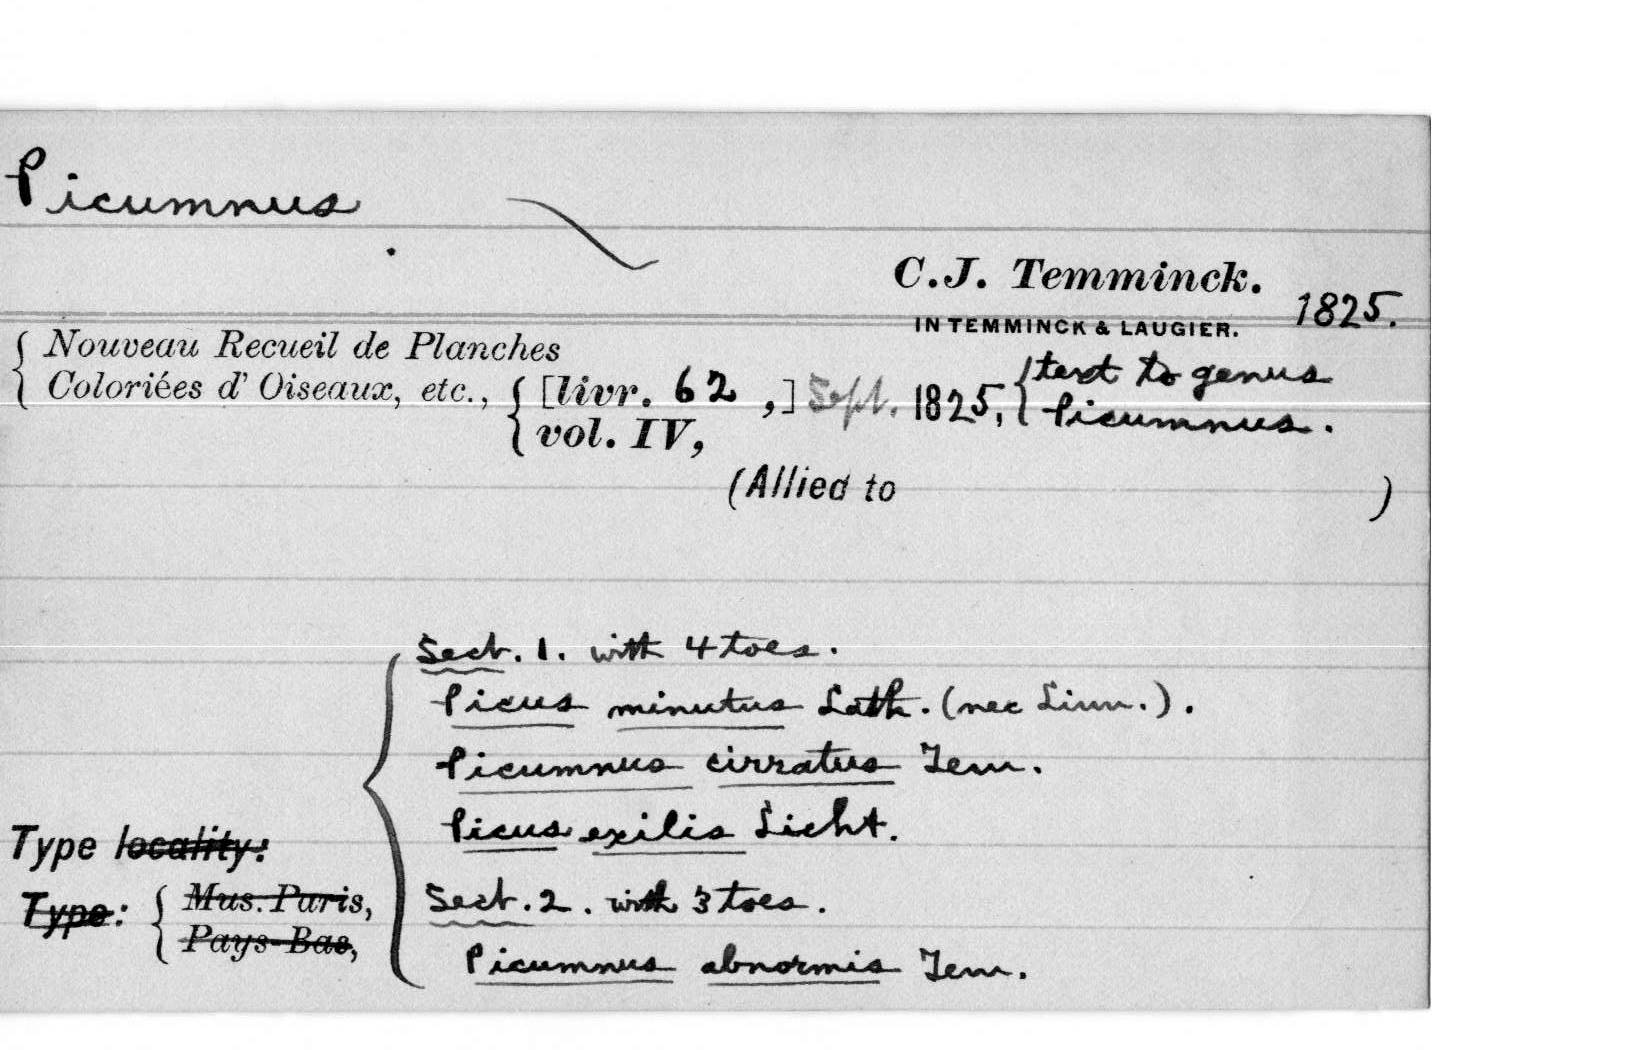 Picumnus
C.J. Temminck.
IN TEMMINCK & LAUGIER. 1825.
Nouveau Recueil de Planches
Coloriées d' Oiseaux, etc., [livr. 62 ,] Sept. 1825, text to genus
vol. IV, Picumnus.
(Allied to )
Sect. 1. with 4 toes.
Picus minutus Lath. (nec Linn.).
Picumnus cirratus Tem.
Picus exilis Licht.
Type locality:
Sect. 2. with 3 toes.
Type: Mus. Paris,
Pays-Bas,
Picumnus abnormis Tem.